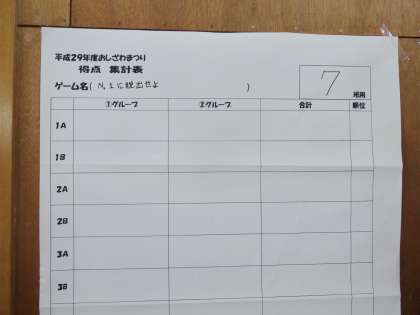 平成29年度おしざわまつり
得点 集計表
7
ゲーム名( No.1に脱出せよ )
班用
①グループ ②グループ 合計 順位
1A
1B
2A
2B
3A
3B